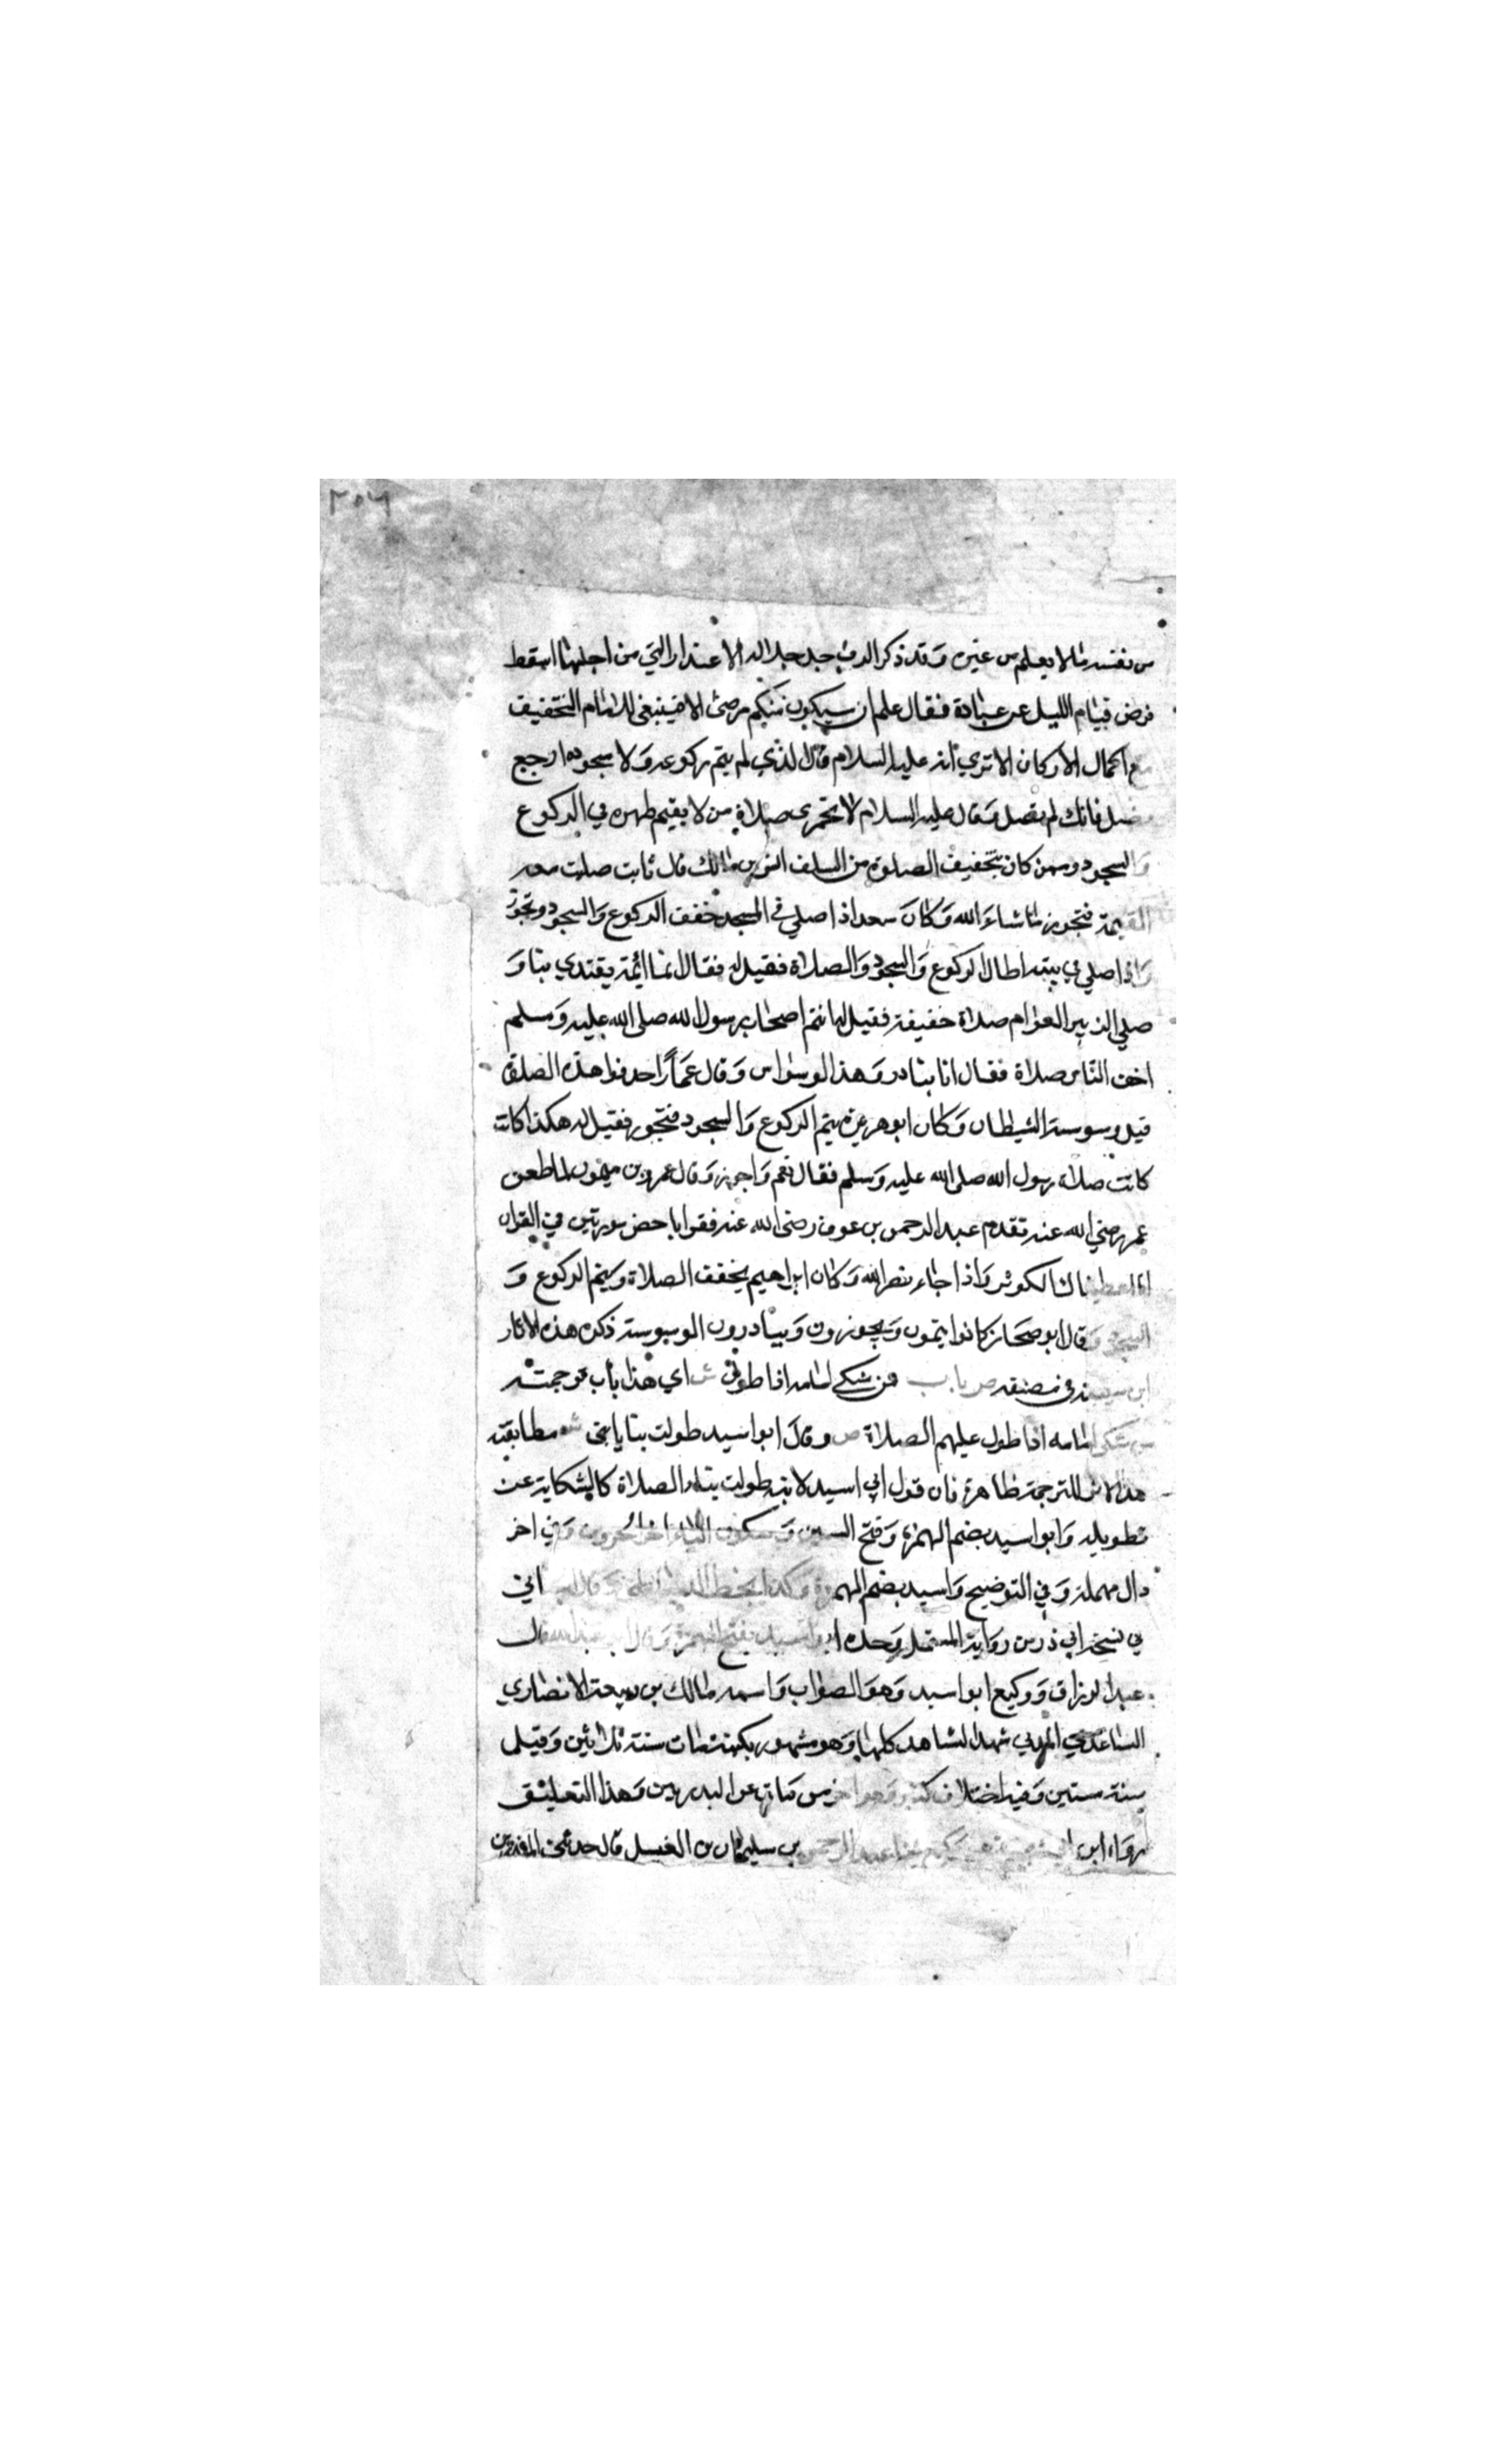 ٢٥٦
من نفسه ما لا يعلم من غيره وقد ذكر الرب جل جلاله الاعذار التي من اجلها اسقط
فرض قيام الليل عن عباده فقال علم ان سيكون منكم مرضى الاية فينبغي للامام التخفيف
مع اكمال الاركان الا تري انه عليه السلام قال للذي لم يتم ركوعه ولا سجوده ارجع
فصل فانك لم تصل وقال عليه السلام لا تجزى صلاة من لا يقيم ظهره في الركوع
والسجود وممن كان يخفيف الصلوة من السلف انس بن مالك قال ثابت صليت معه
العتمة فتجوز ما شاء الله وكان سعد اذا صلي في المسجد خفف الركوع والسجود وتجوز
واذا صلي في بيته اطال الركوع والسجود والصلاة فقيل له فقال انما ائمة يقتدي بنا و
صلي الزبير العوام صلاة خفيفة فقيل له انتم اصحاب رسول الله صلى الله عليه وسلم
اخف الناس صلاة فقال انا بنادر وهذا الوسواس وقال عمار احذفوا هذه الصلوة
قبل وسوسة الشيطان وكان ابو هريرة يتم الركوع والسجود فتجوز فقيل له هكذا كانت
كانت صلاة رسول الله صلى الله عليه وسلم فقال نعم واجوز وقال عمرو بن ميمون لما طعن
عمر رضي الله عنه تقدم عبد الرحمن بن عوف رضى الله عنه فقرا باخصر سورتين في القران
انا اعطيناك الكوثر واذا جاء نصر الله وكان ابراهيم يخفف الصلاة ويتم الركوع و
السجود وقال ابو مجلز كانوا يتمون ويجوزون ويبادرون الوسوسة ذكر هذه الاثار
ابن ابي شيبة في مصنفه ص باب من شكى امامه اذا طول ش اي هذا باب ترجمته
من شكى امامه اذا طول عليهم الصلاة ص وقال ابو اسيد طولت بنا يا بنى ش مطابقته
هذا الاثر للترجمة ظاهرة فان قول ابي اسيد لابنه طولت بنا الصلاة كالشكاية عن
تطويله وابو اسيد بضم الهمزة وفتح السين وسكون الياء اخر الحروف وفي اخر
دال مهملة وفي التوضيح واسيد بضم الهمزة وكذا بخط الدمياطي وقال
في نسخة ابي ذر من رواية المستملي وحده ابو اسيد بفتح الهمزة وقال ابو عبد الله قال
عبد الرزاق ووكيع ابو اسيد وهو الصواب واسمه مالك بن ربيعة الانصاري
الساعدي المدني شهد المشاهد كلها وهو مشهور بكنيته مات سنة ثلاثين وقيل
سنة ستين وفيه اختلاف كثير وهو اخر من مات من البدريين وهذا التعليق
رواه ابن ابي شيبة عن وكيع ثنا عبد الرحمن بن سليمان بن الغسيل قال حدثني المنذر بن